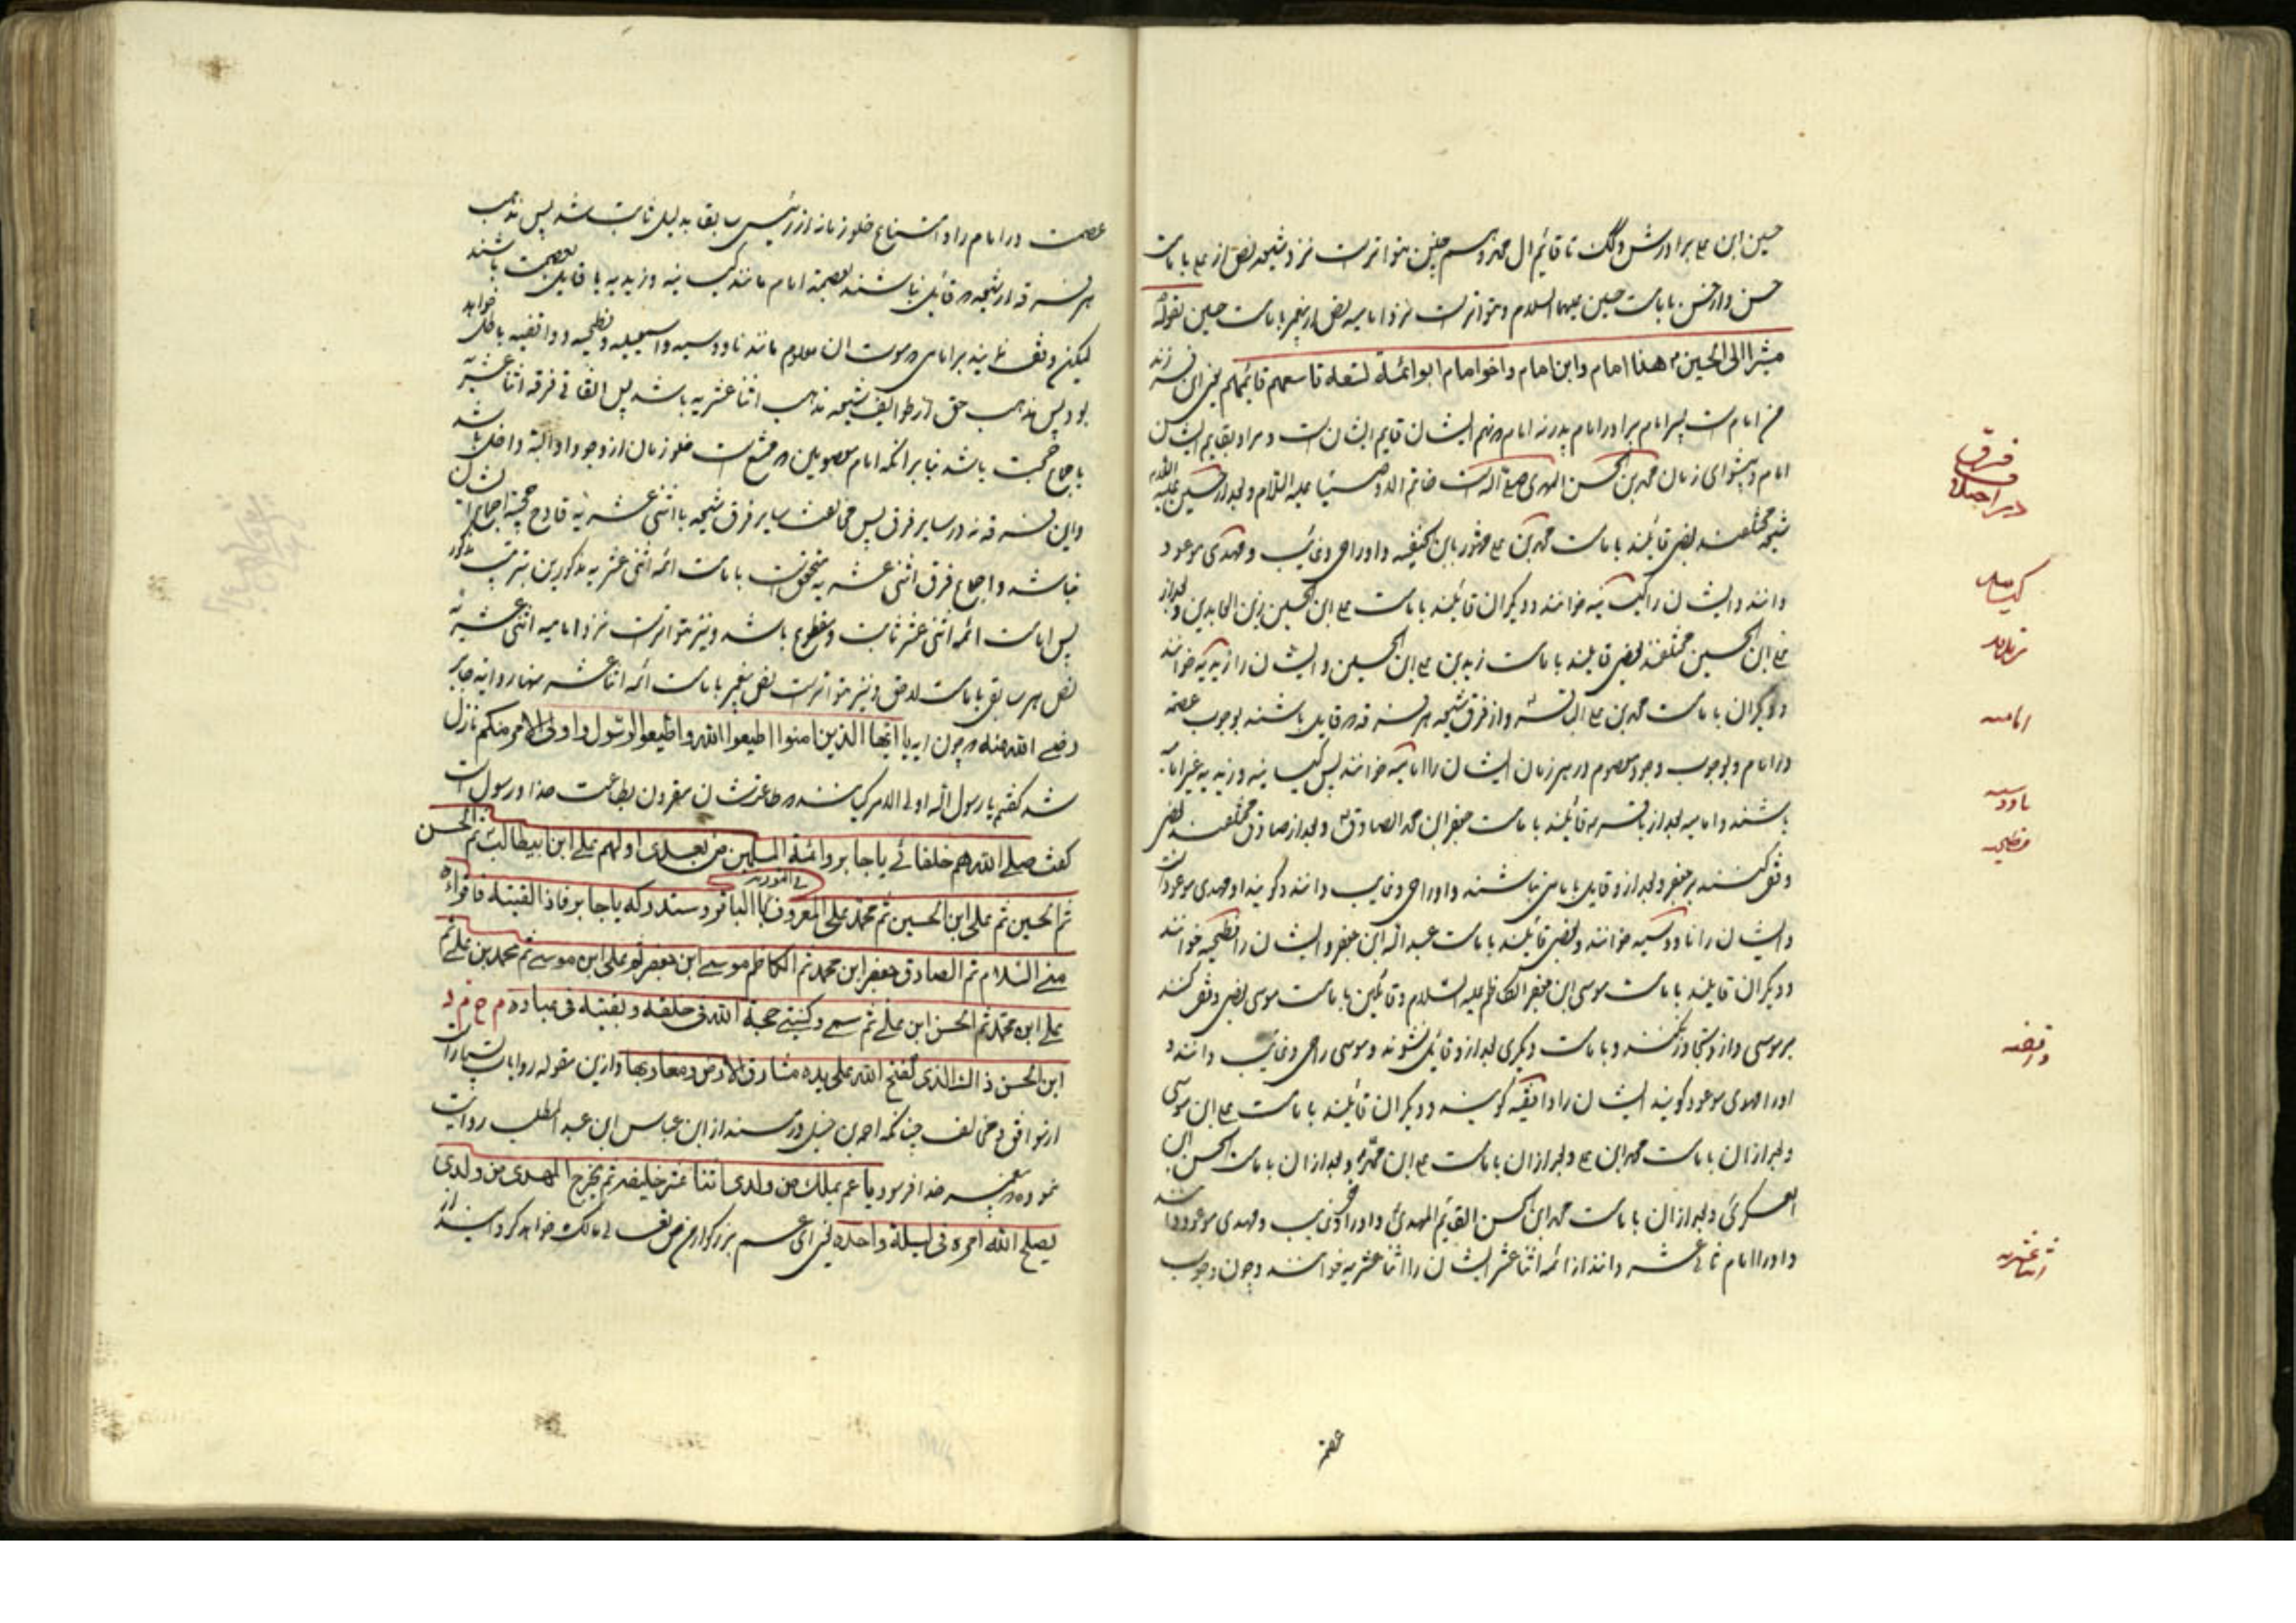 حسین ابن علی برادرش و همچنین تا قائم آل محمد و همچنین متواترست نزد شیعه نص از علی بامامت
حسن و از حسن بامامت حسین علیهما السلام و متواترست نزد امامیه نص از پیغمبر بامامت حسین بقوله
مشیرا الی الحسین هذا امام وابن امام واخو امام ابو ائمة تسعة تاسعهم قائمهم یعنی این فرزند
من امام ست پسر امام برادر امام پدر نه امام که نهم ایشان قایم ایشان ست و مراد بقایم ایشان
امام و پیشوای زمان محمد بن الحسن المهدی است خاتم الاوصیا علیه السلام و بعد از حسین علیه السلام
شیعه مختلفند بعضی قائلند بامامت محمد بن علی مشهور بابن الحنفیه و او را حی و غائب و مهدی موعود
دانند و ایشان را کیسانیه خوانند و دیگران قائلند بامامت علی ابن الحسین زین العابدین و بعد از
علی ابن الحسین مختلفند بعضی قایلند بامامت زید بن علی ابن الحسین و ایشان را زیدیه خوانند
و دیگران بامامت محمد بن علی الباقر و از فرق شیعه هر فرقه که قایل باشند بوجوب عصمة
در امام و بوجوب وجود معصوم در هر زمان ایشان را امامیه خوانند پس کیسانیه و زیدیه غیر امامیه
باشند و امامیه بعد از باقر قائلند بامامت جعفر ابن محمد الصادق و بعد از صادق مختلفند بعضی
وقف کنند بر جعفر و بعد از و قایل بامامی نباشند و او را حی و غایب دانند و گویند او مهدی موعود است
و ایشان را ناووسیه خوانند و بعضی قائلند بامامت عبد الله ابن جعفر و ایشان را فطحیه خوانند
و دیگران قایلند بامامت موسی ابن جعفر الکاظم علیه السلام و قائلین بامامت موسی بعضی وقف کنند
بر موسی و از و تجاوز نکنند و بامامت دیگری بعد از و قائل نشوند و موسی را حی و غایب دانند و
او را مهدی موعود گویند ایشان را واقفیه گویند و دیگران قائلند بامامت علی ابن موسی
و بعد از ان بامامت محمد ابن علی و بعد از ان بامامت علی ابن محمد و بعد از ان بامامت الحسن ابن
العسکری و بعد از ان بامامت محمد ابن الحسن القایم المهدی و او را حی و غایب و مهدی موعود دانند
و او را امام ثانی عشر دانند از ائمه اثنا عشر ایشان را اثنا عشریه خوانند و چون وجوب
عصمة
فرق
کیسانیه
زیدیه
امامیه
ناووسیه
فطحیه
واقفیه
اثنا عشریه
عصمت در امام و امتناع خلو زمان از رئیس سابقا بدلیل ثابت شد پس مذهب
هر فرقه از شیعه که قائل نباشند بعصمة امام مانند کیسانیه و زیدیه یا قایل بعصمت باشند
لیکن وقف نمایند بر امامی که موت آن معلوم مانند ناووسیه و اسمعیلیه و فطحیه و واقفیه باطل خواهد
بود پس مذهب حق از طوایف شیعه مذهب اثنا عشریه باشد پس اتفاق فرقه اثنا عشریه
باجماع حجت باشد بنا بر آنکه امام معصوم که ممتنع ست خلو زمان از وجود او البته داخل باشد
و این فرقه نه در سایر فرق پس مخالفت سایر فرق شیعه با اثنی عشریه قادح حجیة اجماع ایشان
نباشد و اجماع فرق اثنی عشریه متحقق ست بامامت ائمه اثنی عشریه مذکورین بترتیب مذکور
پس امامت ائمه اثنی عشر ثابت و مقطوع باشد و نیز متواترست نزد امامیه اثنی عشریه
نص هر سابق بامامت لاحق و نیز متواترست نص پیغمبر بامامت ائمه اثنا عشر منها روایة جابر
رضی الله عنه که چون آیه یا ایها الذین امنوا اطیعوا الله واطیعوا الرسول واولی الامر منکم نازل
شد گفتم یا رسول الله اولی الامر کیانند که طاعتشان مقرون بطاعت خدا و رسول است
گفت صلی الله هم خلفائی یا جابر وائمة المسلمین من بعدی اولهم علی ابن ابیطالب ثم الحسن
فی التوریة
ثم الحسین ثم علی ابن الحسین ثم محمد علی المعروف بالباقر وستدرکه یا جابر فاذا لقیته فاقراءه
منی السلام ثم الصادق جعفر ابن محمد ثم الکاظم موسی ابن جعفر ثم علی ابن موسی ثم محمد بن علی ثم
علی ابن محمد ثم الحسن ابن علی ثم سمی وکنیتی حجة الله فی خلقه وبقیته فی عباده م ح م د
ابن الحسن ذاك الذی یفتح الله علی یده مشارق الارض ومغاربها و ازین مقوله روایات بسیارست
از موافق و مخالف چنانکه احمد بن حنبل در مسند از ابن عباس ابن عبد المطلب روایت
نموده که پیغمبر خدا فرمود یا عم یملك من ولدی اثنا عشر خلیفه ثم یخرج المهدی من ولدی
یصلح الله امره فی لیلة واحدة یعنی ای عم بزرگوار من مالک خواهد کردانید از